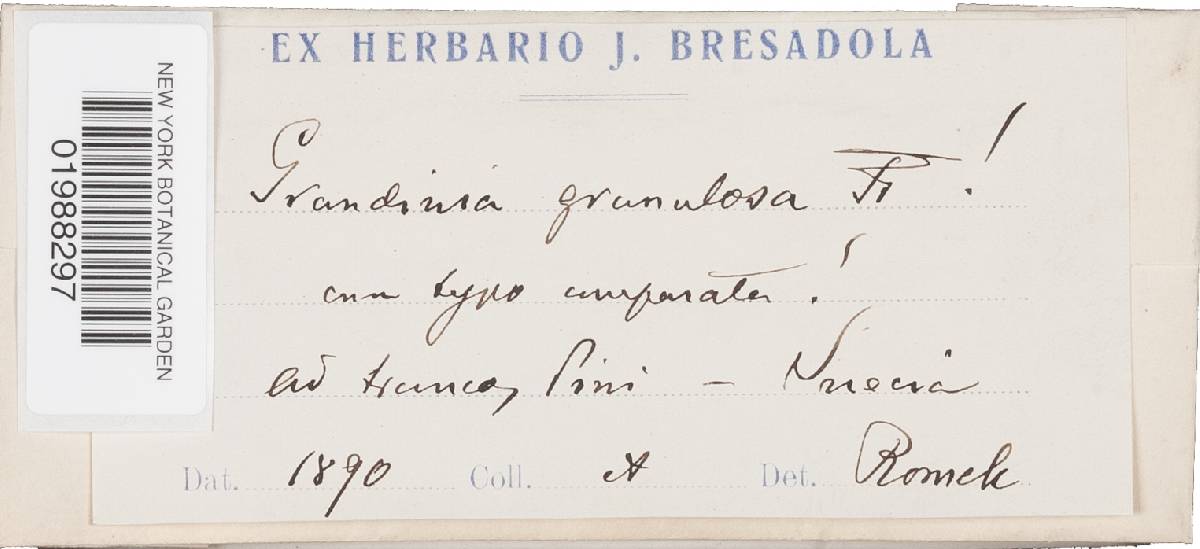 EX HERBARIO J. BRESADOLA
Grandinia granulosa Fr.!
cum typo comparata!
ad truncos Pini – Suecia
Dat. 1890 Coll. et Det. Romell
NEW YORK BOTANICAL GARDEN
01988297